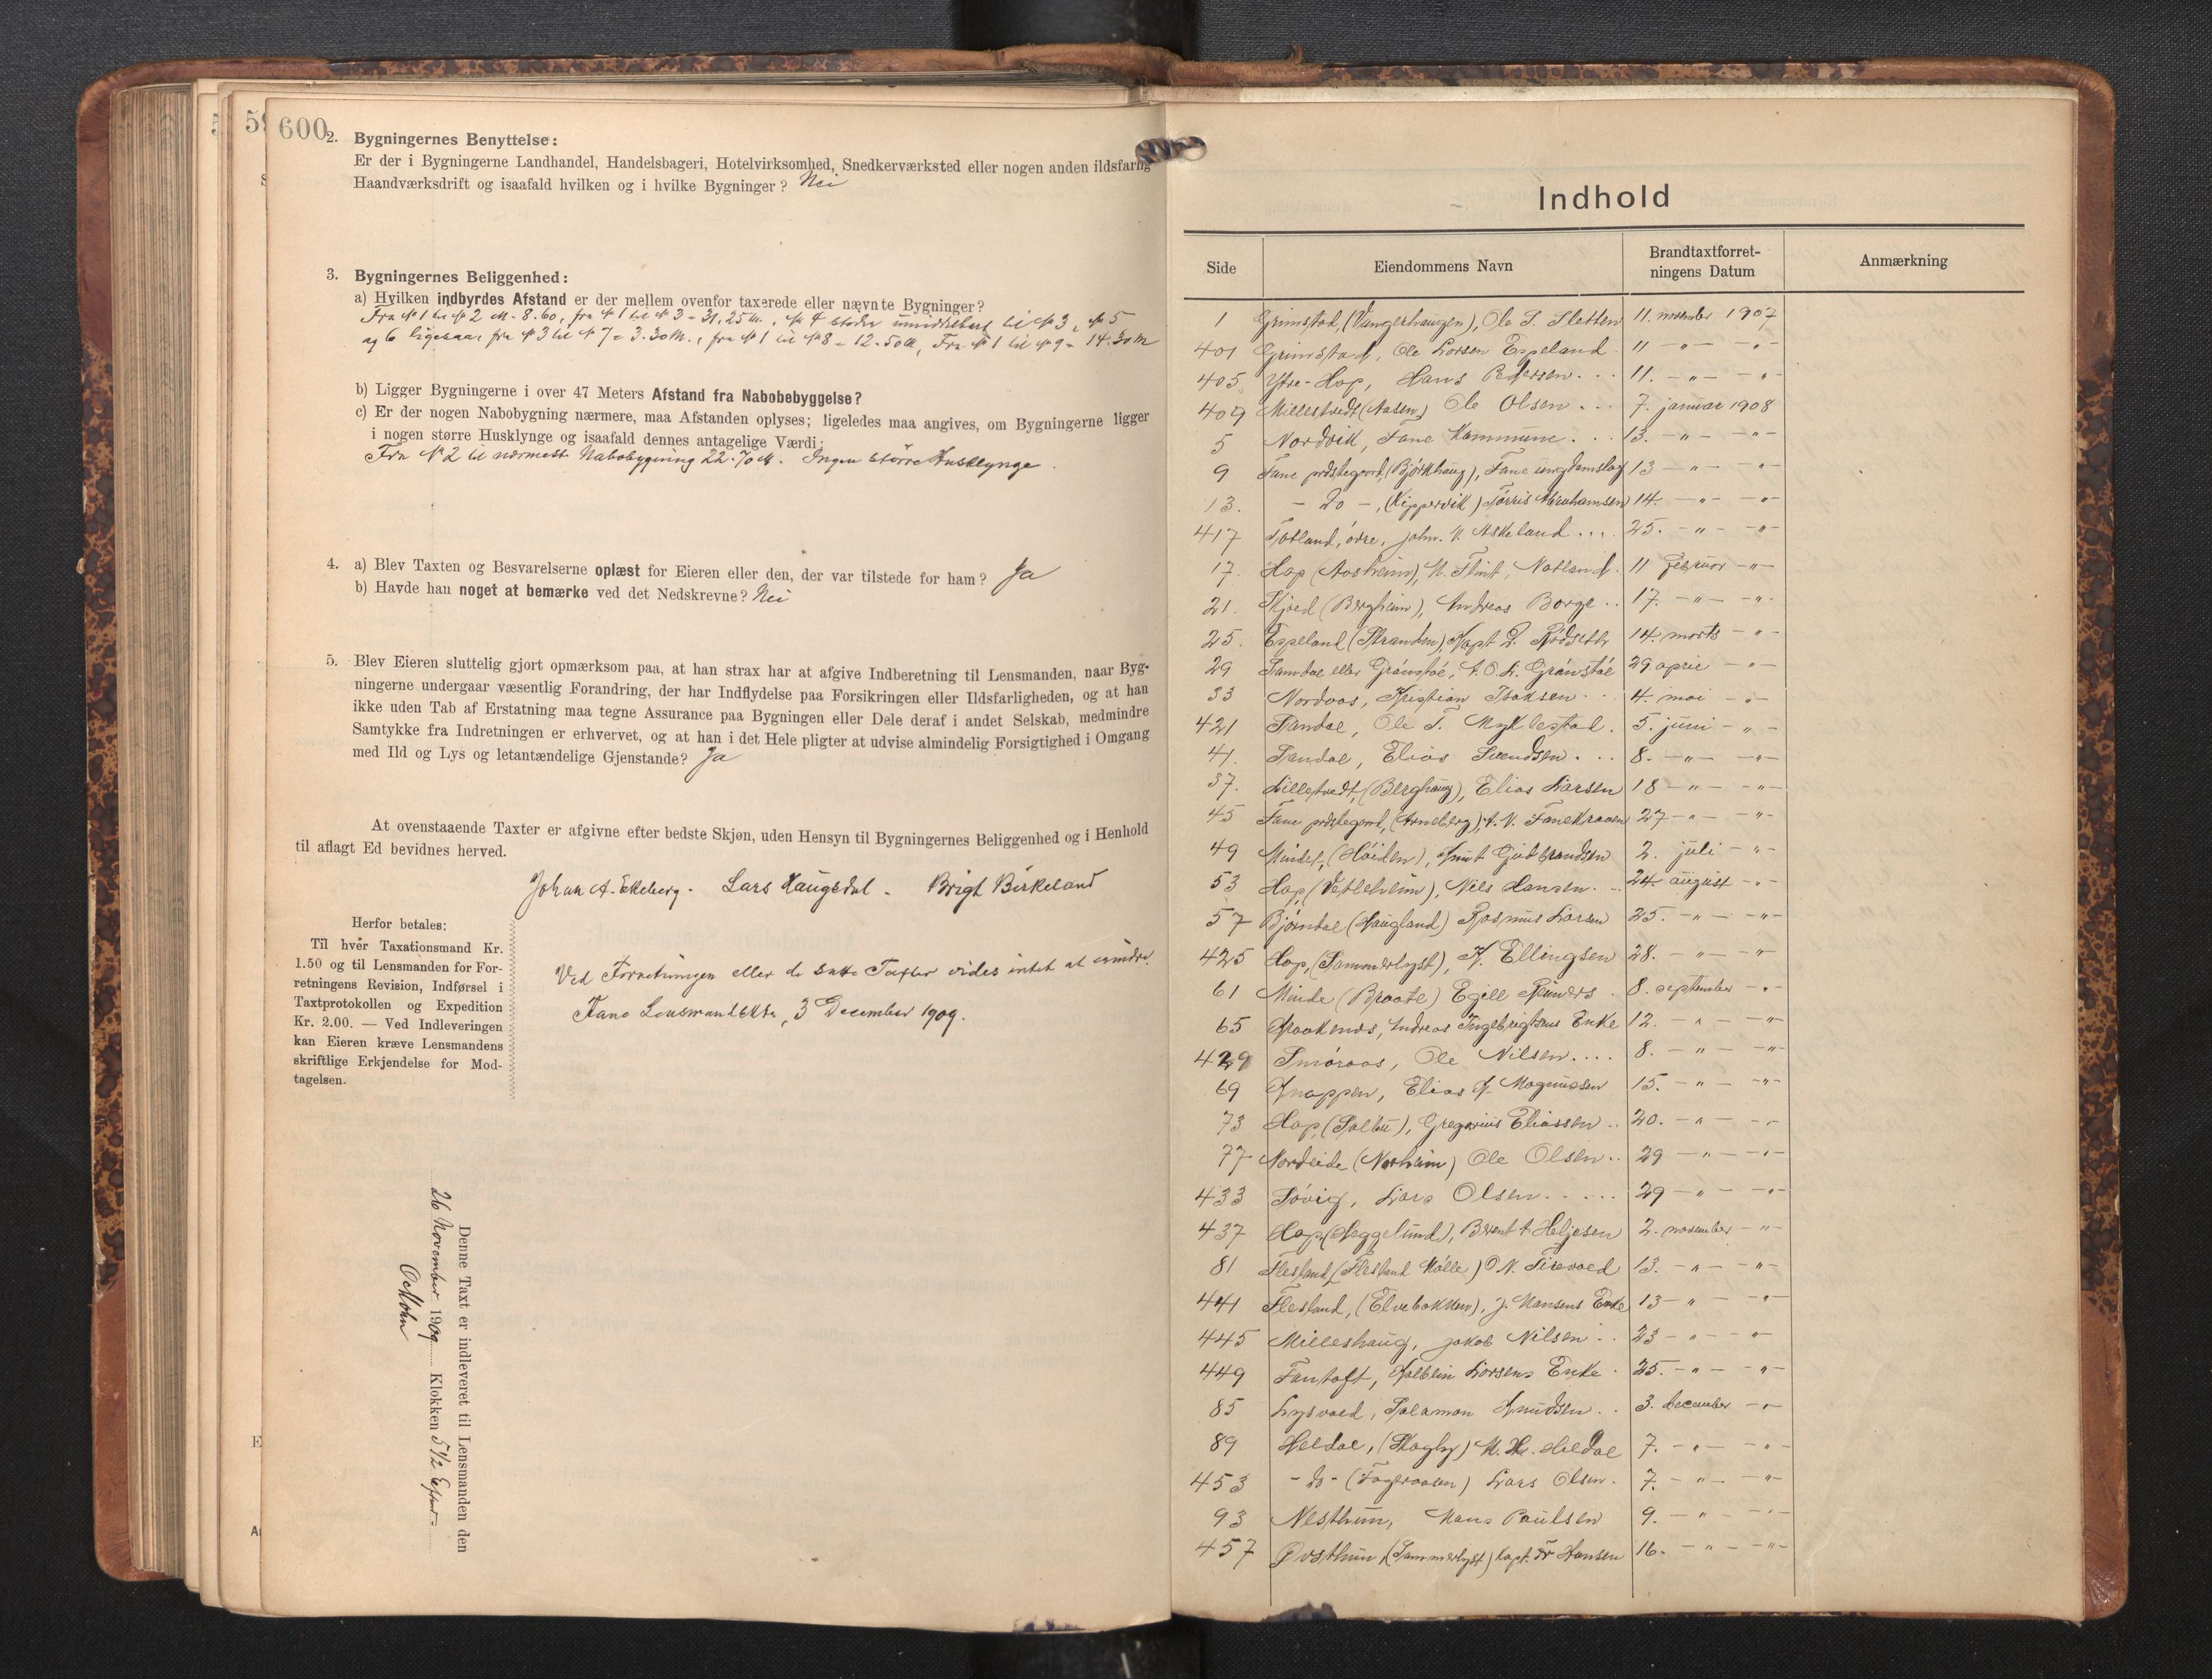 600
2. Bygningernes Benyttelse:
Er der i Bygningerne Landhandel, Handelsbageri, Hotelvirksomhed, Snedkerværksted eller nogen anden ildsfarlig
Haandværksdrift og isaafald hvilken og i hvilke Bygninger? Nei
3. Bygningernes Beliggenhed:
a) Hvilken indbyrdes Afstand er der mellem ovenfor taxerede eller nævnte Bygninger?
Fra № 1 til № 2 M. 8.60, fra № 1 til № 3 = 31.25 m., № 4 støder umiddelbart til № 3, № 5
og 6 ligesaa, fra № 3 til № 7 = 3.30 M., fra № 1 til № 8 = 12.50 M, Fra № 1 til № 9 = 14.30 m
b) Ligger Bygningerne i over 47 Meters Afstand fra Nabobebyggelse?
c) Er der nogen Nabobygning nærmere, maa Afstanden oplyses; ligeledes maa angives, om Bygningerne ligger
i nogen større Husklynge og isaafald dennes antagelige Værdi:
Fra № 2 til nærmeste Nabobygning 22.70 M. Ingen større Husklynge.
4. a) Blev Taxten og Besvarelserne oplæst for Eieren eller den, der var tilstede for ham? Ja
b) Havde han noget at bemærke ved det Nedskrevne? Nei
5. Blev Eieren sluttelig gjort opmærksom paa, at han strax har at afgive Indberetning til Lensmanden, naar Byg-
ningerne undergaar væsentlig Forandring, der har Indflydelse paa Forsikringen eller Ildsfarligheden, og at han
ikke uden Tab af Erstatning maa tegne Assurance paa Bygningen eller Dele deraf i andet Selskab, medmindre
Samtykke fra Indretningen er erhvervet, og at han i det Hele pligter at udvise almindelig Forsigtighed i Omgang
med Ild og Lys og letantændelige Gjenstande? Ja
At ovenstaaende Taxter er afgivne efter bedste Skjøn, uden Hensyn til Bygningernes Beliggenhed og i Henhold
til aflagt Ed bevidnes herved.
Johan A. Ekeberg. Lars Haugsdal. Brigt Birkeland
Herfor betales:
Til hver Taxationsmand Kr.
1.50 og til Lensmanden for For-
retningens Revision, Indførsel i
Taxtprotokollen og Expedition
Kr. 2.00. — Ved Indleveringen
kan Eieren kræve Lensmandens
skriftlige Erkjendelse for Mod-
tagelsen.
Ved Forretningen eller de satte Taxter vides intet at erindre.
Fane Lensmandskt., 3 December 1909.
Denne Taxt er indleveret til Lensmanden den
26 November 1909 Klokken 5 1/2 Efterm
O Mohn
Indhold
Side Eiendommens Navn Brandtaxtforret-
ningens Datum Anmærkning
1 Grimstad, (Vangerhaugen), Ole S. Sletten 11. november 1907
401 Grimstad, Ole Larsen Espeland 11 -"- -"-
405 Ytre-Hop, Hans Pedersen... 11. -"- -"-
409 Millestvedt (Aasen) Ole Olsen... 7. januar 1908
5 Nordvik, Fane Kommune... 13. -"- -"-
9 Fane præstegaard, (Bjørkhaug), Fane ungdomslag 13 -"- -"-
13. - Do -, (Kippervik) Tørris Abrahamsen 14. -"- -"-
417 Totland, øvre, Johan V. Askeland.... 25. -"- -"-
17. Hop (Aasheim), N. Flint, Natland. 11 Februar -"-
21. Skjold (Bergheim), Andreas Borge.. 17. -"- -"-
25. Espeland (Stranden), Kapt D. Rødseth 14. marts -"-
29 Samdal eller Grønstøl, A. O. L. Grønstøl 29 april -"-
33 Nordaas, Kristian Isaksen.. 4. mai -"-
421 Sandal, Ole T. Myklestad. 5. juni -"-
41. Sandal, Elias Svendsen... 8. -"- -"-
37. Lillestvedt, (Berghaug), Elias Larsen 18 -"- -"-
45 Fane præstegaard, (Arneberg), A. V. Fanekraaen 27 -"- -"-
49 Mindet, (Høiden), Knut Gudbrandsen 2. juli -"-
53 Hop, (Vetleheim), Nils Hansen. 24. august -"-
57 Bjørndal (Haugland) Rasmus Larsen 25. -"- -"-
425 Hop, (Sommerlyst), K. Ellingsen 28. -"- -"-
61 Minde (Braate) Egill Reimers. 8. september -"-
65 Kraakenes, Andreas Ingebrigtsens Enke 12. -"- -"-
429 Smøraas, Ole Nilsen.... 8. -"- -"-
69 Knappen, Elias K. Magnussen 15. -"- -"-
73 Hop, (Solbu), Gregorius Eliassen.. 20. -"- -"-
77 Nordeide (Norheim) Ole Olsen.. 29 -"- -"-
433 Søvig, Lars Olsen..... 29 -"- -"-
437 Hop, (Heggelund), Berent A. Heljesen 2. november -"-
81 Flesland, (Flesland Mølle) O. N. Titevold 13. -"- -"-
441 Flesland, (Elvebakken), J. Hansens Enke 13 -"- -"-
445 Milleshaug, Jakob Nilsen.. 23 -"- -"-
449 Fantoft, Kolbein Larsens Enke. 25. -"- -"-
85 Lysvold, Salamon Knudsen.. 3. december -"-
89 Heldal, (Skogly) M. H. Heldal 7. -"- -"-
453 - Do - (Fageraasen) Lars Olsen. 7. -"- -"-
93 Nesttun, Mons Paulsen 9. -"- -"-
457 Øvsttun, (Sommerlyst) Kapt. Fr Hansen 16. -"- -"-